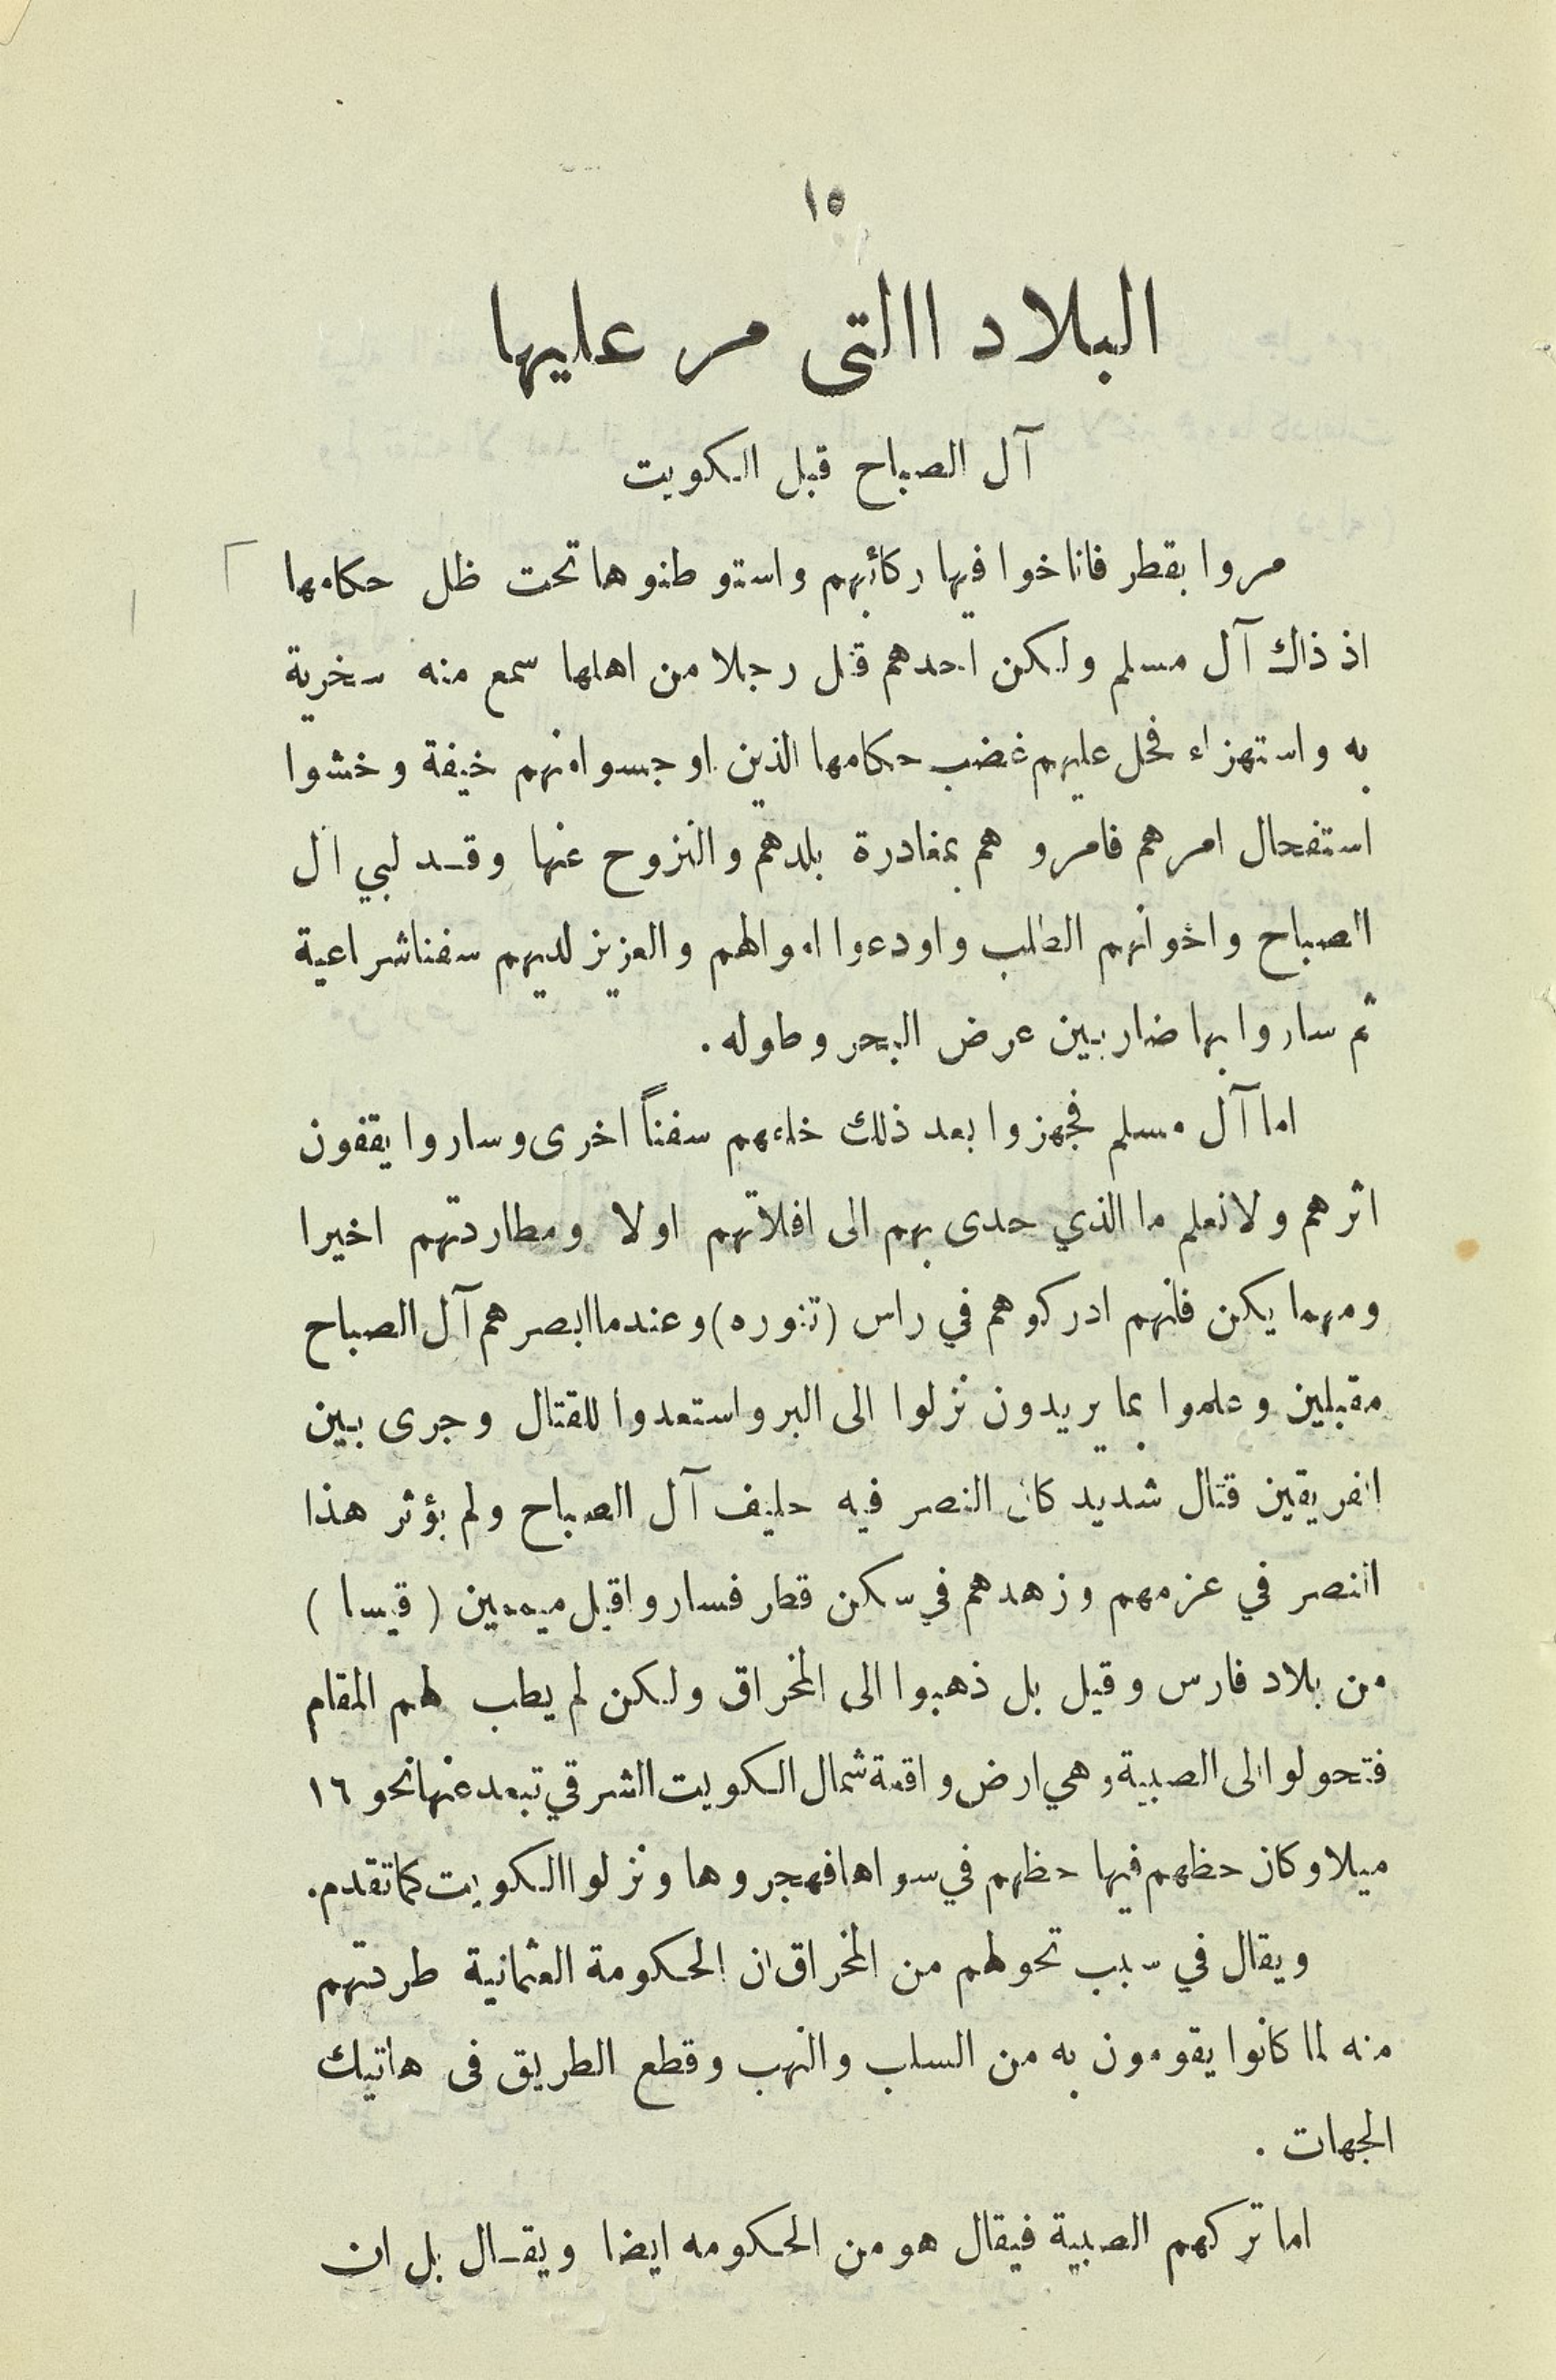 ١٥
البلاد االتى مر عليها
آل الصباح قبل الكويت
مروا بقطر فاناخوا فيها ركأبهم واستوطنوها تحت ظل حكامها
اذ ذاك آل مسلم ولكن احدهم قتل رجلا من اهلها سمع منه سخرية
به واستهزاء فحل عليهم غضب حكامها الذين اوجسوا منهم خيفة وخشوا
استفحال امرهم فامروهم بمغادرة بلدهم والنزوح عنها وقد لبي آل
الصباح واخوانهم الطلب واودعوا اموالهم والعزيز لديهم سفنا شراعية
ثم ساروا بها ضاربين عرض البحر وطوله .
اما آل مسلم فجهزوا بعد ذلك خلفهم سفناً اخرى وساروا يقفون
اثرهم ولا نعلم ما الذي حدى بهم الى افلاتهم اولا ومطاردتهم اخيرا
ومهما يكن فانهم ادركوهم في راس (تنوره) وعندما ابصرهم آل الصباح
مقبلين وعلموا بما يريدون نزلوا الى البر واستعدوا للقتال وجرى بين
الفريقين قتال شديد كان النصر فيه حليف آل الصباح ولم يؤثر هذا
النصر في عزمهم وزهدهم في سكن قطر فساروا قيل ميممين ( قيسا )
من بلاد فارس وقيل بل ذهبوا الى المخراق ولكن لم يطب لهم المقام
فتحولوا الى الصبية وهي ارض واقعة شمال الكويت الشرقي تبعد عنها نحو ١٦
ميلا وكان حظهم فيها حظهم في سواها فهجروها ونزلوا الكويت كما تقدم.
ويقال في سبب تحولهم من المخراق ان الحكومة العثمانية طردتهم
منه لما كانوا يقومون به من السلب والنهب وقطع الطريق فى هاتيك
الجهات .
اما تركهم الصبية فيقال هو من الحكومه ايضا ويقال بل ان